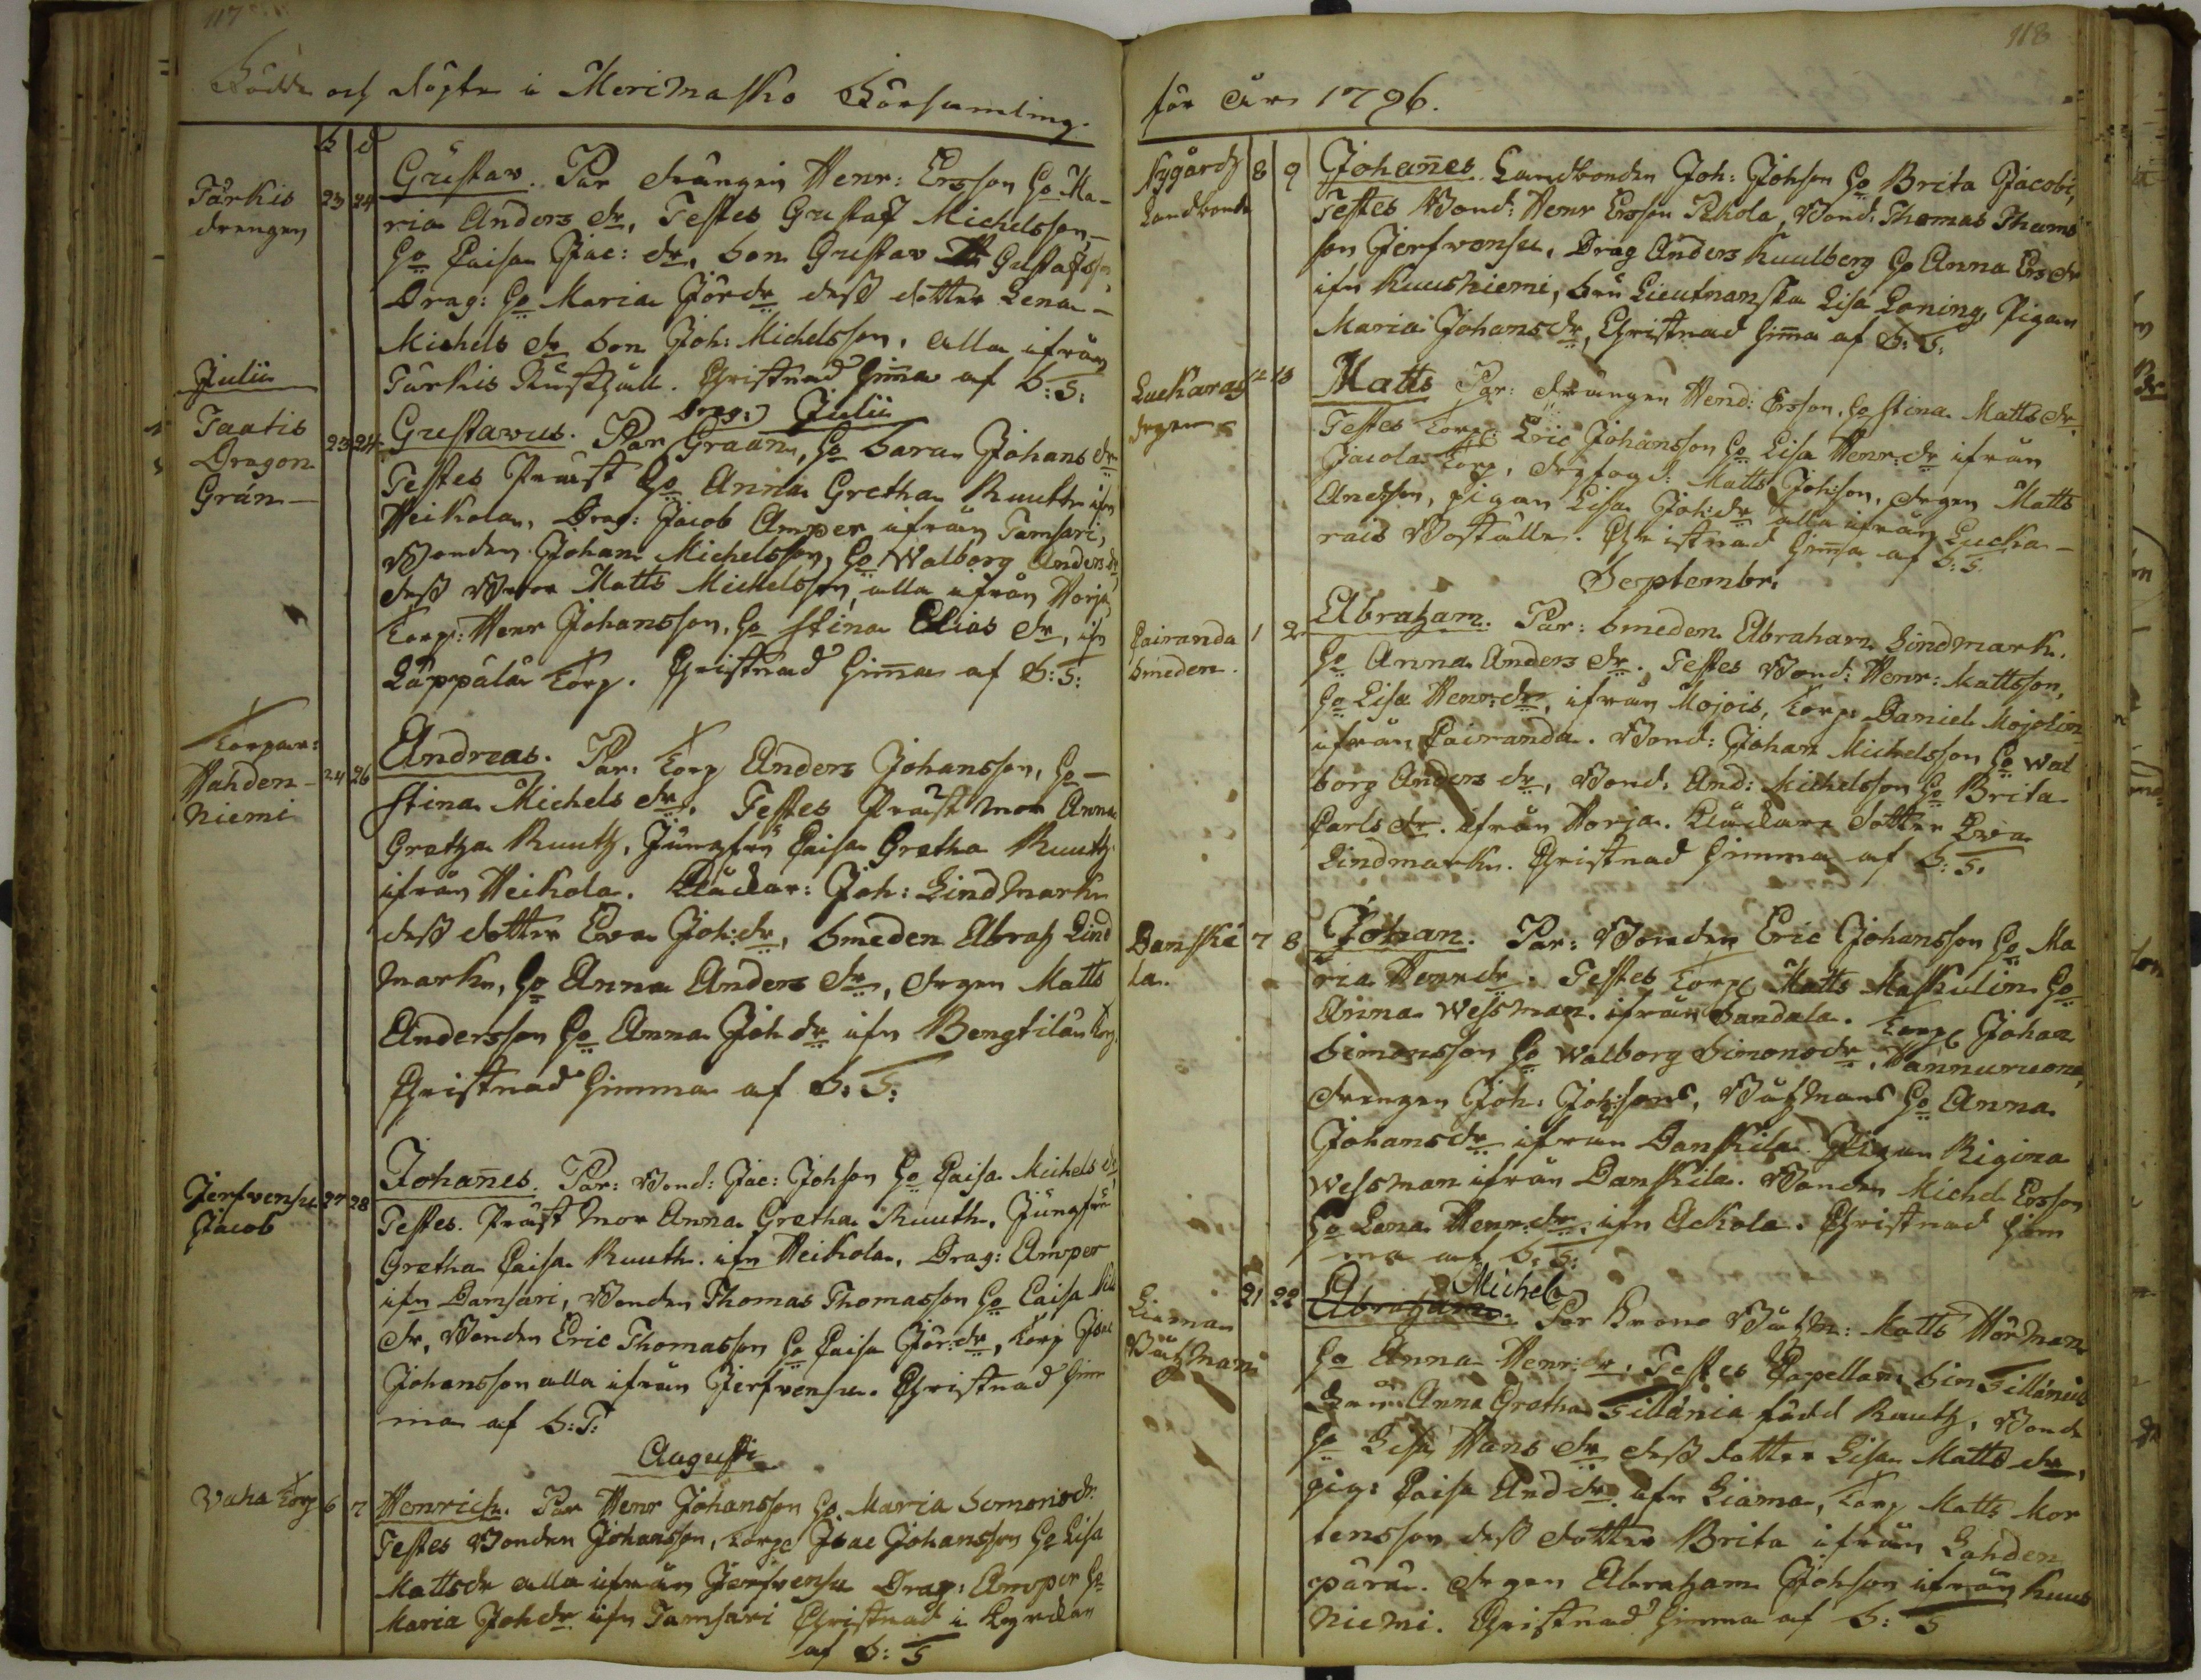 117
Födde och döpte i Merimasko Församling.
b d
Tärkis
drengen
23 24
Gustav. Par drängen Henr: Ersson Ho Ma-
ria Anders dr, Testes Gustaf Michelsson
Ho Caisa Jac: dr, Son Gustav Gustafsson
Drag: Ho Maria Jör dr dess dotter Lena
Michels dr Son Joh: Michelsson, alla ifrån
Tärkis Rusthåll. Christnad hima af S: T:
Julii
Drag: Julii
Taatis
Dragon
Grán
23 24
Gustavus. Par Graan, Ho Sara Johans dr
Testes Präst Ho Anna Gretha Ruuth ifr
Heikola, Drag: Jacob Amper ifrån Tamsari,
Bonden Johan Michelsson, Ho Walborg Anders dr
dess Broder Matts Michelsson, alla ifrån Horja
Torp: Henr Johansson, Ho Stina Elias dr, ifr
Läppälä Torp. Christnad hima af S: T:
Torpar:
Hahden-
niemi
24 26
Andreas. Par: Torp Anders Johansson, Ho
Stina Michels dr. Testes Präst mor Anna
Gretha Ruuth, Jungfru Caisa Gretha Ruuth
ifrån Heikola. Kläckar: Joh: Lindmark
dess dotter Eva Joh: dr, Smeden Abrah Lind
mark, Ho Anna Anders dr, drgen Matts
Andersson Ho Anna Joh dr ifr Bengtilä Torp.
Christnad himma af S: T:
Jerfvensu
Jacob
27 28
Johañes. Par: Bond: Jac: Johson Ho Caisa Michels dr
Testes. Präst mor Anna Gretha Ruuth, Jungfru
Gretha Caisa Ruuth ifr Heikola, Drag: Amper
ifr Damsari, Bonden Thomas Thomasson Ho Caisa
dr, Bonden Eric Thomasson Ho Caisa Jör: dr, Torp
Johansson alla ifrån Jerfvensu. Christnad him
ma af S: T:
Augusti
Vaha Torp 6 7
Henrich. Par Henr Johansson Ho Maria Simons dr
Testes Bonden Johansson, Torp Isac Johansson Ho Lisa
Matts dr alla ifrån Jerfvensu Drag: Amper Ho
Maria Joh dr ifr Tamsari Christnad i Kyrckan
af S: T
118
för år 1796.
Nygårds
Landbonde
8 9
Johañes. Landbonden Joh: Johson Ho Brita Jacobi,
Testes Bond: Henr Ersson Pekola, Bond: Thomas Thoms
son Jerfvensu, Drag Anders Kuulberg Ho Anna Ers dr
ifr Kuusniemi, Fru Lieutnanska Lisa Loning, Pigan
Maria Johans dr, Christnad hima af S: T:
Luckarais
drgen
12 13
Matts Par: drängen Hend: Ersson, Ho Stina Matts dr
Testes Torp: Eric Johansson Ho Lisa Henr: dr ifrån
Jacola Torp, drgfogd: Matts Johson, drgen Matts
Andsson, pigan Lisa Joh: dr alla ifrån Lucka-
rais Boställe. Christnad hima af S: T.
Septembr.
Cairanda
Smeden.
1 2
Abraham. Par: Smeden Abraham Lindmark.
Ho Anna Anders dr. Testes Bond: Henr: Mattsson,
Ho Lisa Henr: dr, ifrån Mojois, Torp: Daniel Mojolin
ifrån Cairanda. Bond: Johan Michelsson Ho Wal
borg Anders dr, Bond: And: Michelsson Ho Brita
Carls dr. ifrån Horja. Kläckare dotter Eva
Lindmark. Christnad himma af S: T.
Danski
la.
7 8
Johan. Par: Bonden Eric Johansson Ho Ma
ria Henr dr. Testes Torp Matts Maskulin Ho
Anna Wessman. ifrån Sandala. Torp Johan
Simonsson Ho Walborg Simons dr, Vannuruona,
drengen Joh: Johsons, Båtsmans Ho Anna
Johans dr ifrån Danskila. Pigan Rigina
Wessman ifrån Danskila. Bonden Michel Ersson
Ho Lena Henr: dr ifn Ackola. Christnad him
ma af S: T:
Liiman
Båtsman
21 22
Abraham. Michel
Par Krono Båtsm: Matts Hörman
Ho Anna Henr: dr. Testes Capellan: Sin Tillänius
Fru Anna Gretha Tillánia född Ruuth, Bond
Ho Lisa Hans dr dess dotter Lisa Matts dr,
pig: Caisa And dr ifr Liama, Torp Matts Mor
tensson dess dotter Brita ifrån Lahden
pärä. drgen Abraham Johson ifrån Kuus
niemi. Christnad himma af S: T